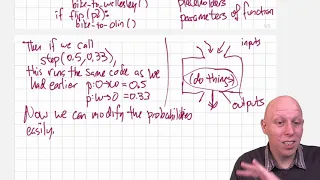 bike-to-wellesley()
if flip(p2):
bike-to-olin()
placeholders
parameters of function
Then if we call
step(0.5, 0.33),
this runs the same code as we
had earlier p:O→W = 0.5
p:W→O = 0.33
Now we can modify the probabilities
easily.
inputs
(do things)
outputs